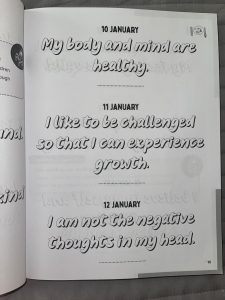 10 JANUARY
My body and mind are
healthy.
11 JANUARY
I like to be challenged
so that I can experience
growth.
12 JANUARY
I am not the negative
thoughts in my head.